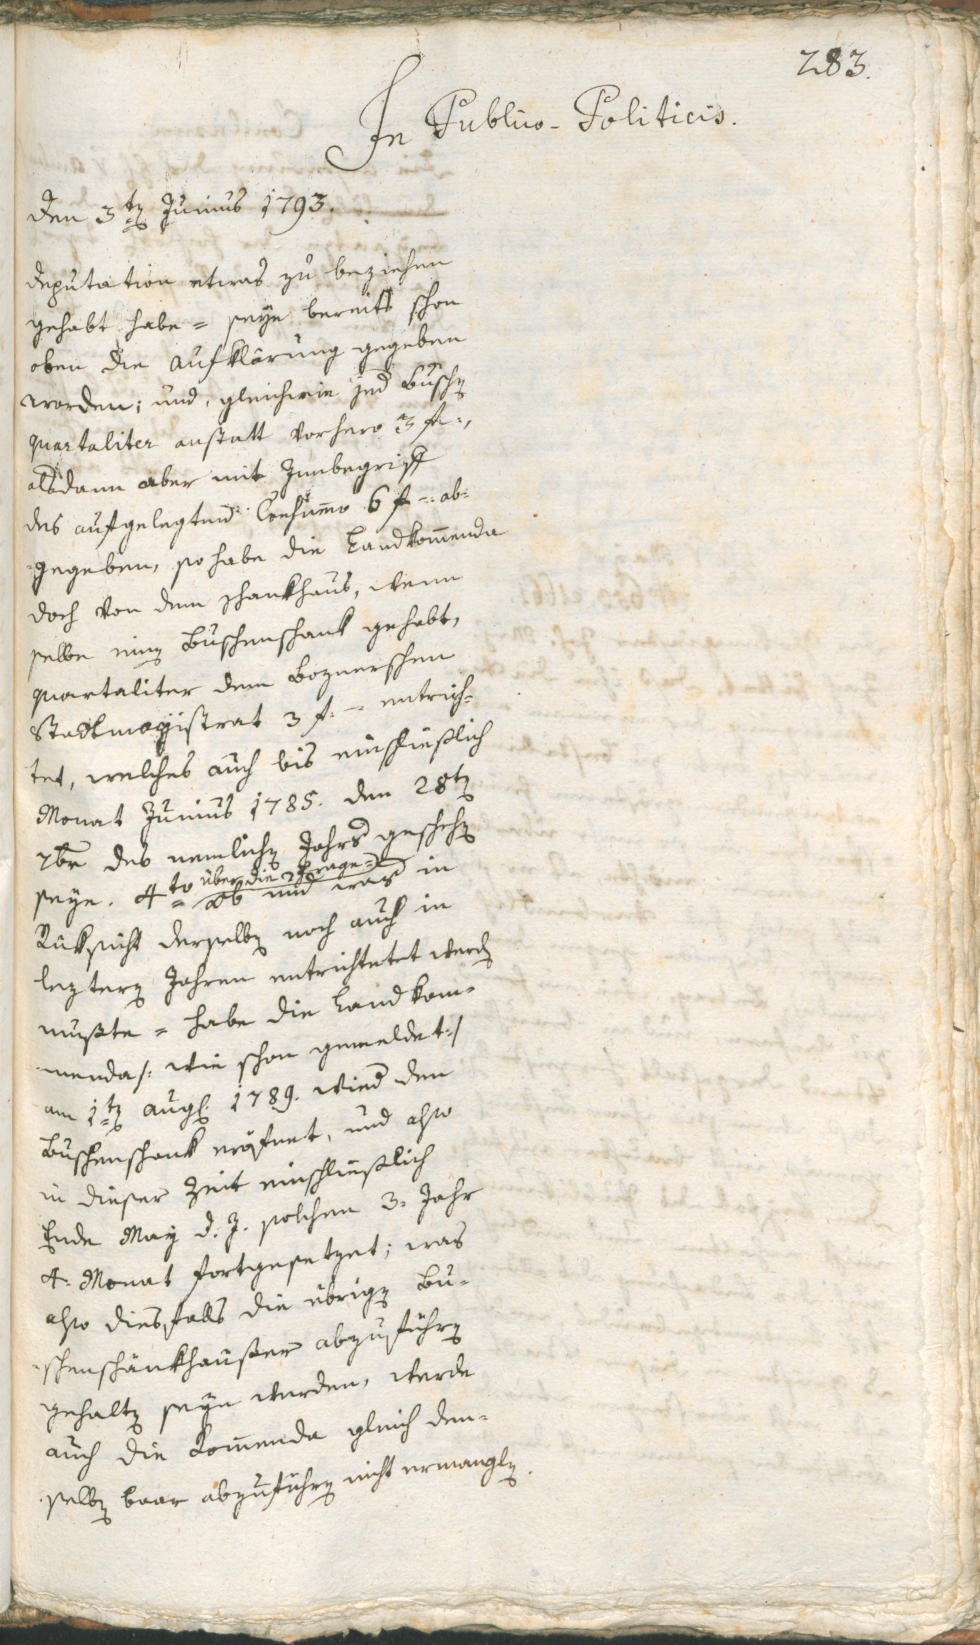 283.
In Publico-Politicis.
Den 3ten Junius 1793.
deputation etwas zu beziehen
gehabt habe = seye bereits schon
oben die Aufklärung gegeben
worden; und, gleichwie jed Buschen
quartaliter anstatt vorhero 3 f:,
alsdann aber mit Innbegriff
des aufgelegten Consumo 6 f -: ab-
gegeben, so habe die Landkom̅enda
doch von dem schankhaus, wenn
selbe einen Buschenschank gehabt,
quartaliter dem Boznerschen
Stadtmagistrat 3 f: -- entrich-
tet, welches auch bis einschließlich
Monat Junius 1785. den 28ten
7br des nemlichen Jahrs geschehen
seye. 4to über die Frage =
ob und was in
Rüksicht derselben noch auch in
leztern Jahren entrichtetet werden
mußte = habe die Landkom-
menda /: wie schon gemeldet :/
am 1ten Augst. 1789. wied den
Buschenschank eröfnet, und also
in dieser Zeit einschließlich
Ende May d. J. solchen 3. Jahr
4. Monat fortgesetzet; was
also diesfalls die übrigen Bu-
schenschänkhäußer abzuführen
gehalten seyn wurden, werde
auch die Kom̅enda gleich den-
selben baar abzuführen nicht ermanglen.